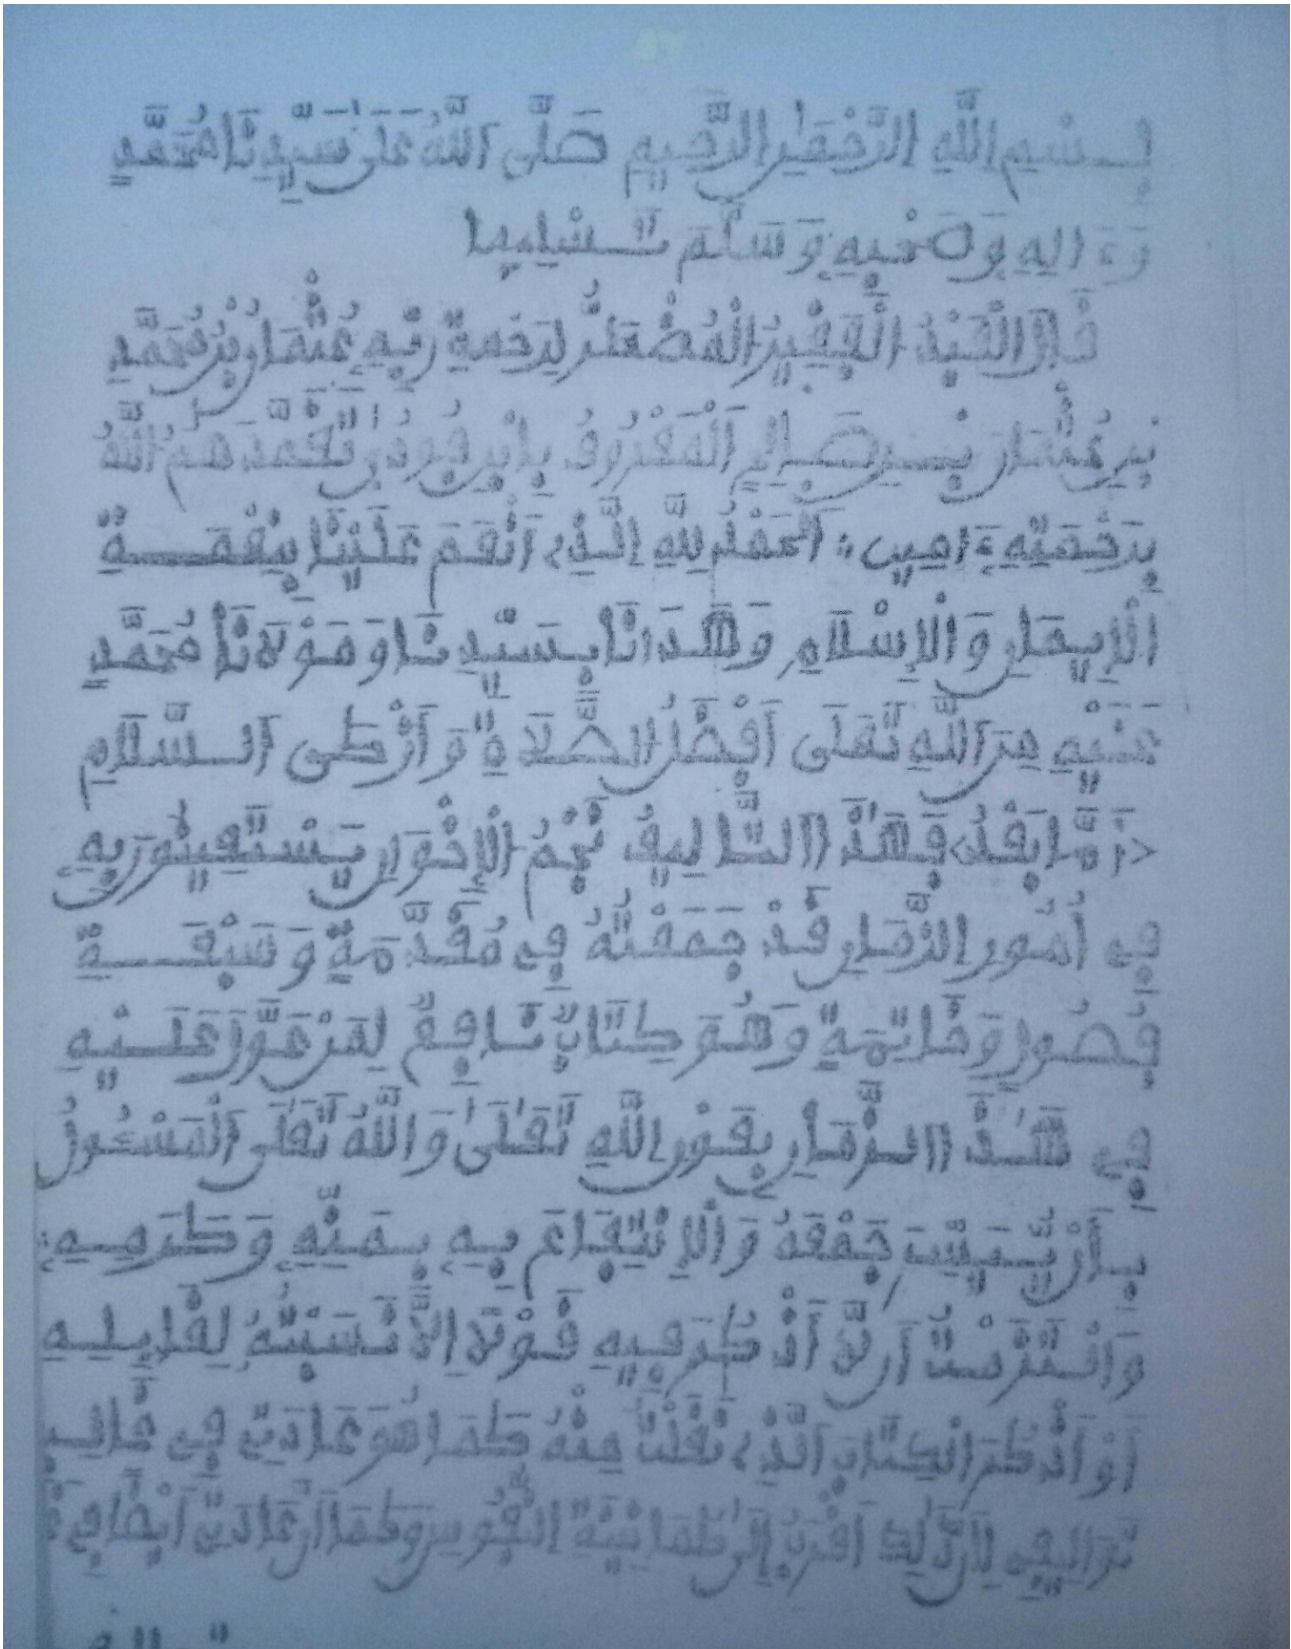 بِسْمِ اللَّهِ الرَّحْمَٰنِ الرَّحِيمِ صَلَّى اللَّهُ عَلَىٰ سَيِّدِنَا مُحَمَّدٍ
وَءَالِهِ وَصَحْبِهِ وَسَلَّمَ تَسْلِيمًا
قَالَ الْعَبْدُ الْفَقِيرُ الْمُضْطَرُّ لِرَحْمَةِ رَبِّهِ عُثْمَانُ بْنُ مُحَمَّدِ
بْنِ عُثْمَانَ بْنِ صَالِحٍ الْمَعْرُوفُ بِابْنِ فُودُيِ تَغَمَّدَهُمُ اللَّهُ
بِرَحْمَتِهِ ءَامِين الْحَمْدُ لِلَّهِ الَّذِي أَنْعَمَ عَلَيْنَا بِنِعْمَةِ
الْإِيمَانِ وَالْإِسْلَامِ وَهَدَانَا بِسَيِّدِنَا وَمَوْلَانَا مُحَمَّدٍ
عَلَيْهِ مِنَ اللَّهِ تَعَلَى أَفْضَلُ الصَّلَاةِ وَأَزْكَى السَّلَامِ
أَمَّا بَعْدُ فَهَٰذَا التَّالِيفُ نَجْمُ الْإِخْوَانِ يَسْتَعِينُونَ بِهِ
فِي أُمُورِ الزَّمَانِ قَدْ جَمَعْتُهُ فِي مُقَدَّمَةٍ وَسَبْعَةِ
فُصُولٍ وَخَاتِمَةٍ وَهُوَ كِتَابٌ نَافِعٌ لِمَنْ عَوَّلَ عَلَيْهِ
فِي هَٰذَا الزَّمَانِ بِعَوْنِ اللَّهِ تَعَلَىٰ وَاللَّهُ تَعَلَى الْمَسْئُولُ
بِأَنْ يُيَسِّرَ جَمْعَهُ وَالِانْتِفَاعَ بِهِ بِمَنِّهِ وَكَرَمِهِ
وَالْتَزَمْتُ أَن لَّا أَذْكُرَ فِيهِ قَوْلًا إِلَّا نَسَبْتُهُ لِقَائِلِهِ
أَوْ أَذْكُرَ الْكِتَابَ الَّذِي نَقَلْتُ مِنْهُ كَمَا هُوَ عَادَتِي فِي غَالِبِ
تَوَالِيفِي لِأَنَّ ذَٰلِكَ أَقْرَبُ إِلَىٰ طُمَانِينَةِ النُّفُوسِ وَكَمَا أَنَّ عَادَتِي أَيْضًا فِي